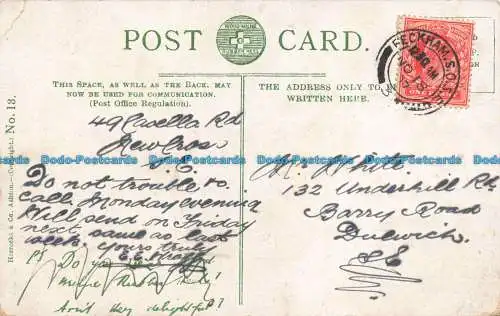 POST CARD.
THIS SPACE, AS WELL AS THE BACK, MAY
NOW BE USED FOR COMMUNICATION.
(Post Office Regulation).
THE ADDRESS ONLY TO BE
WRITTEN HERE.
PECKHAM, S.O.
No. 13.
49 Rd
New Cross
S.E.
Do not trouble to
call Monday evening
Will send on Friday
next same as last
week. Yours truly
PS Do you
Aint they delightful?
Mr. White
132 Underhill Rd
Barry Road
Dulwich.
SE
Dodo-Postcards Dodo-Postcards Dodo-Postcards Dodo-Postcards